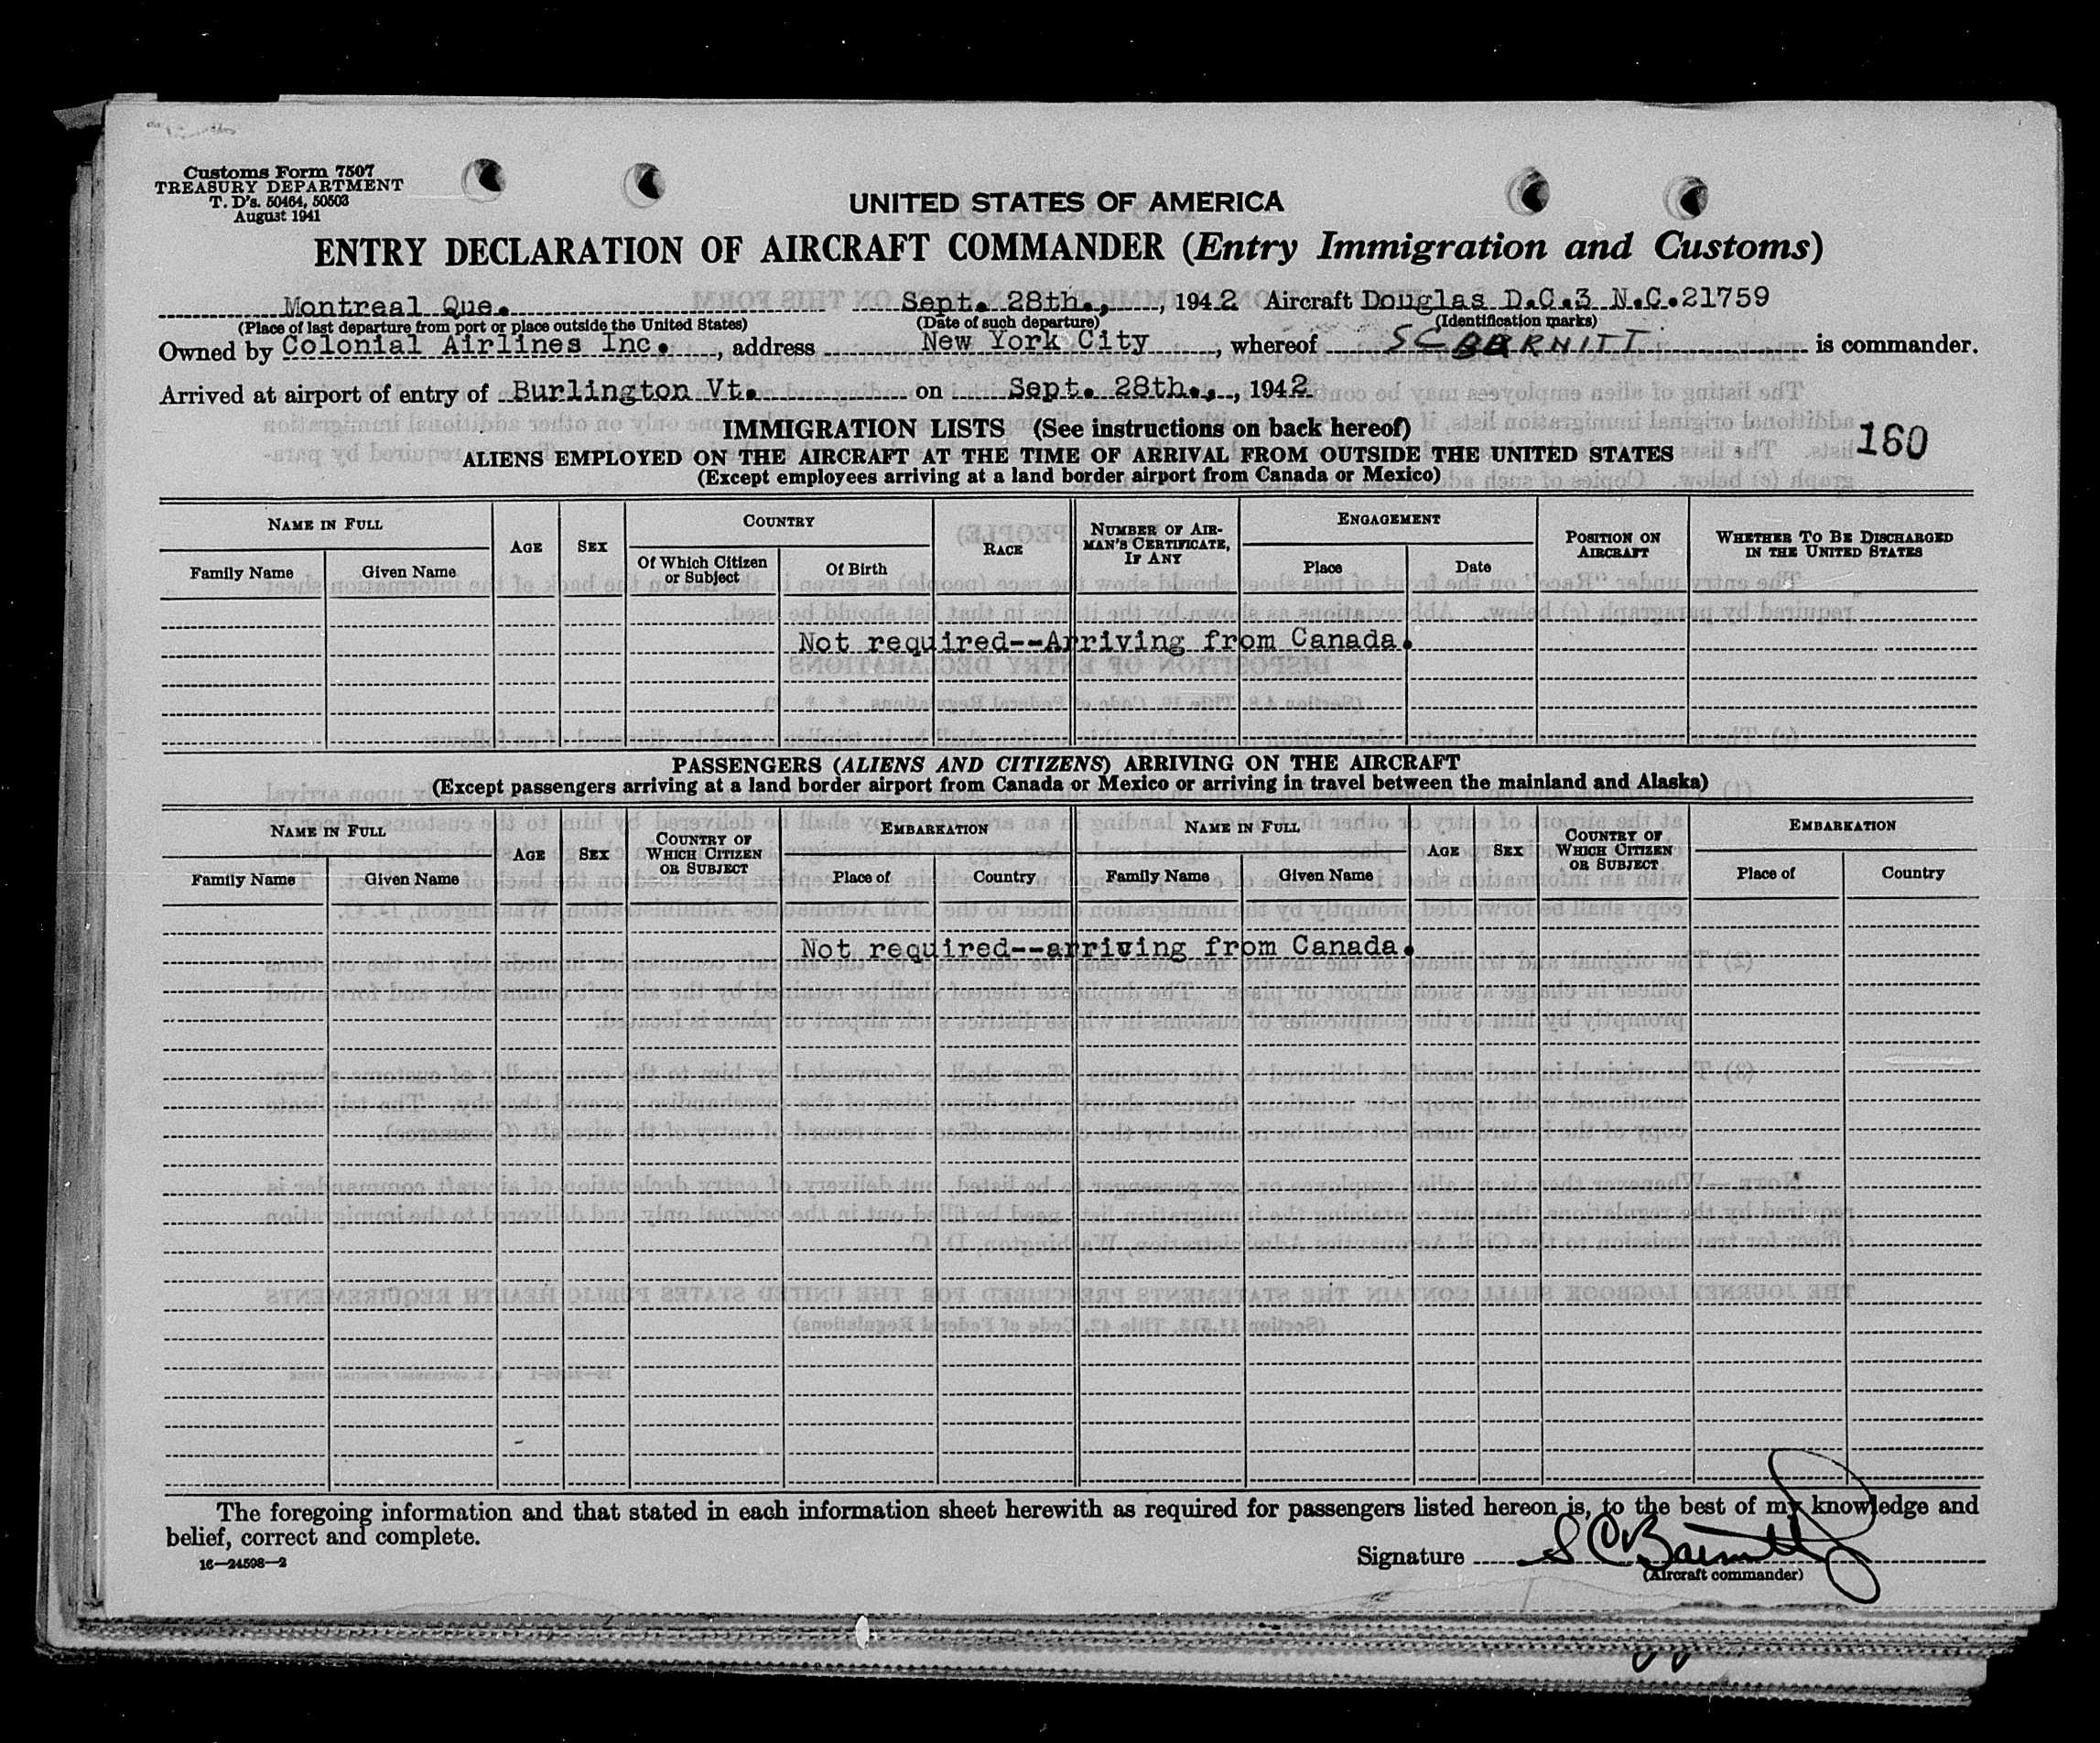 Customs Form 7507
TREASURY DEPARTMENT
T. D's. 50464, 50503
August 1941
UNITED STATES OF AMERICA
ENTRY DECLARATION OF AIRCRAFT COMMANDER (Entry Immigration and Customs)
Montreal Que. Sept. 28th., , 1942 Aircraft Douglas D.C.3 N.C.21759
(Place of last departure from port or place outside the United States) (Date of such departure) (Identification marks)
Owned by Colonial Airlines Inc. , address New York City , whereof SC BARNITT is commander.
Arrived at airport of entry of Burlington Vt. on Sept. 28th., , 1942
IMMIGRATION LISTS (See instructions on back hereof)
160
ALIENS EMPLOYED ON THE AIRCRAFT AT THE TIME OF ARRIVAL FROM OUTSIDE THE UNITED STATES
(Except employees arriving at a land border airport from Canada or Mexico)
NAME IN FULL AGE SEX COUNTRY RACE NUMBER OF AIR-MAN'S CERTIFICATE, IF ANY ENGAGEMENT POSITION ON AIRCRAFT WHETHER TO BE DISCHARGED IN THE UNITED STATES
Family Name Given Name Of Which Citizen or Subject Of Birth Place Date
Not required--Arriving from Canada.
PASSENGERS (ALIENS AND CITIZENS) ARRIVING ON THE AIRCRAFT
(Except passengers arriving at a land border airport from Canada or Mexico or arriving in travel between the mainland and Alaska)
NAME IN FULL AGE SEX COUNTRY OF WHICH CITIZEN OR SUBJECT EMBARKATION NAME IN FULL AGE SEX COUNTRY OF WHICH CITIZEN OR SUBJECT EMBARKATION
Family Name Given Name Place of Country Family Name Given Name Place of Country
Not required--arriving from Canada.
The foregoing information and that stated in each information sheet herewith as required for passengers listed hereon is, to the best of my knowledge and
belief, correct and complete.
16—24598—2
Signature S C Barnitt
(Aircraft commander)